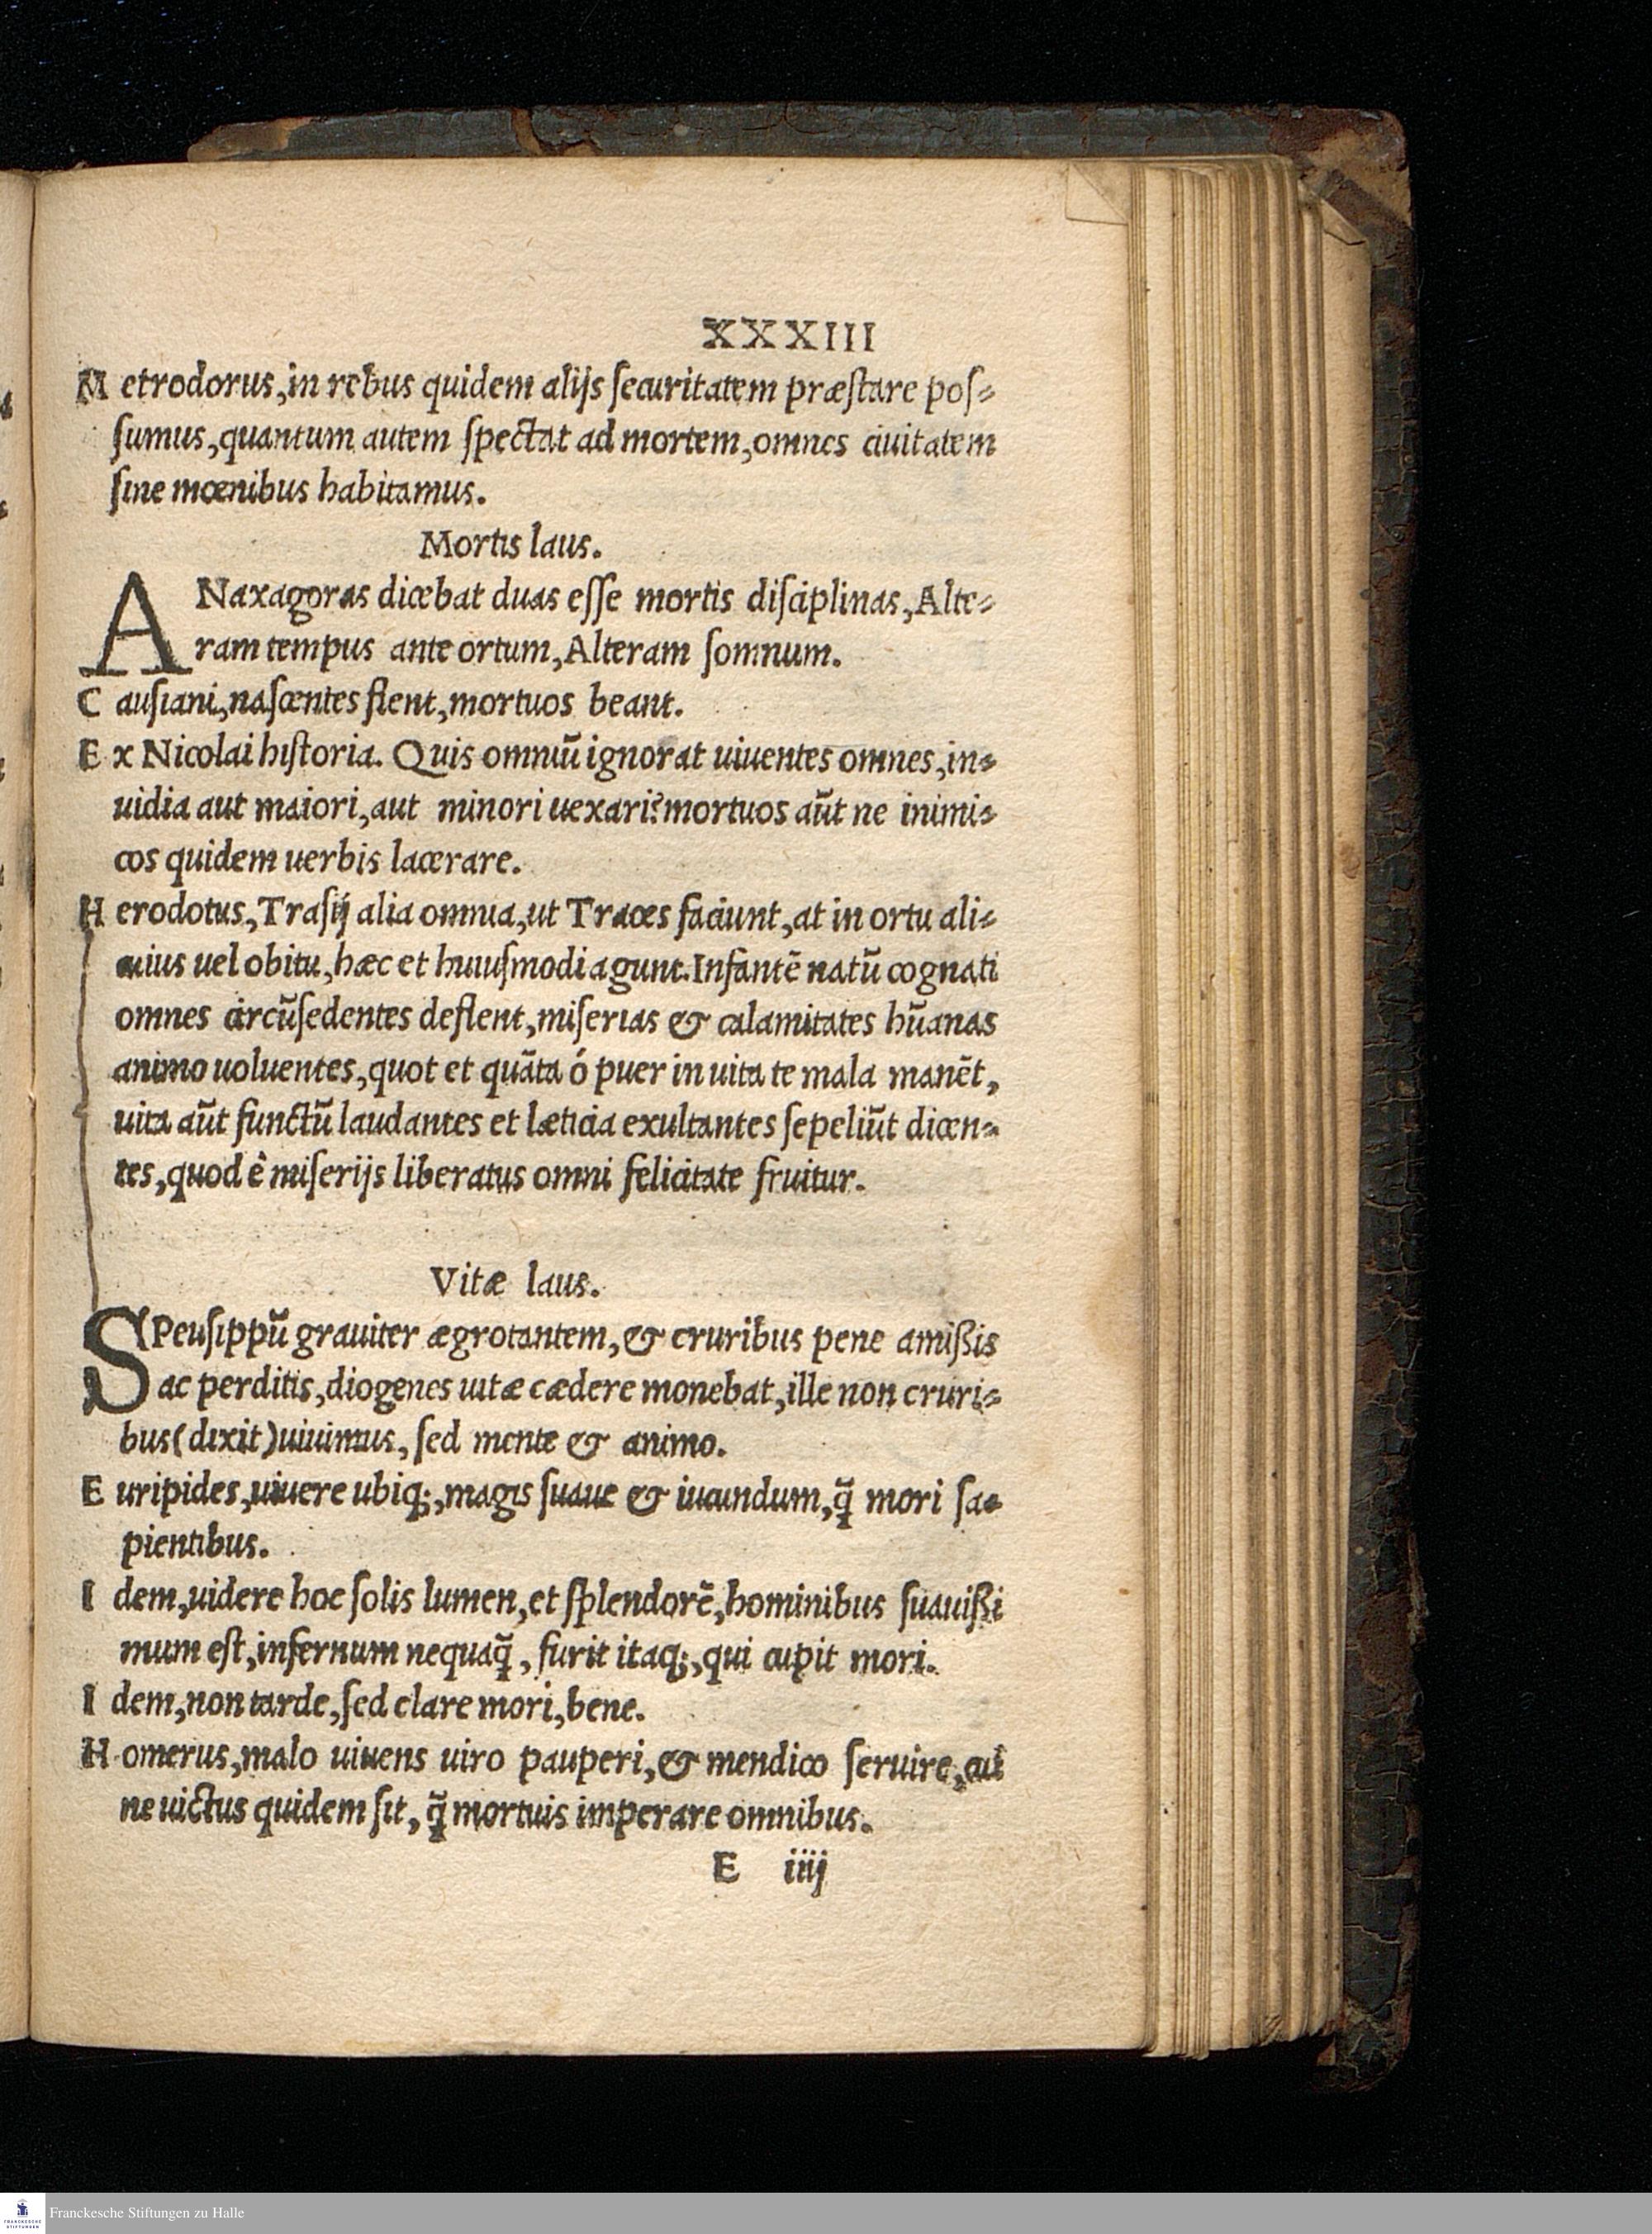 XXXIII
Metrodorus, in rebus quidem alijs ſecuritatem præſtare poſ⸗
ſumus, quantum autem ſpectat ad mortem, omnes ciuitatem
ſine mœnibus habitamus.
Mortis laus.
ANaxagoras dicebat duas eſſe mortis diſciplinas, Alte⸗
ram tempus ante ortum, Alteram ſomnum.
Cauſiani, naſcentes flent, mortuos beant.
Ex Nicolai hiſtoria. Quis omniũ ignorat uiuentes omnes, in⸗
uidia aut maiori, aut minori uexari? mortuos aũt ne inimi⸗
cos quidem uerbis lacerare.
Herodotus, Traſij alia omnia, ut Traces faciunt, at in ortu ali⸗
cuius uel obitu, hæc et huiuſmodi agunt. Infantẽ natũ cognati
omnes circũſedentes deflent, miſerias & calamitates hũanas
animo uoluentes, quot et quãta ó puer in uita te mala manẽt,
uita aũt functũ laudantes et læticia exultantes ſepeliũt dicen⸗
tes, quod ê miſerijs liberatus omni felicitate fruitur.
Vitæ laus.
SPeuſippũ grauiter ægrotantem, & cruribus pene amißis
ac perditis, diogenes uitæ cædere monebat, ille non cruri⸗
bus (dixit) uiuimus, ſed mente & animo.
Euripides, uiuere ubiq;, magis ſuaue & iucundum, q̃ mori ſa⸗
pientibus.
Idem, uidere hoc ſolis lumen, et ſplendorẽ, hominibus ſuauißi
mum eſt, infernum nequaq̃, furit itaq;, qui cupit mori.
Idem, non tarde, ſed clare mori, bene.
Homerus, malo uiuens uiro pauperi, & mendico ſeruire, cui
ne uictus quidem ſit, q̃ mortuis imperare omnibus.
E iiij
Franckesche Stiftungen zu Halle
FRANCKESCHE
STIFTUNGEN